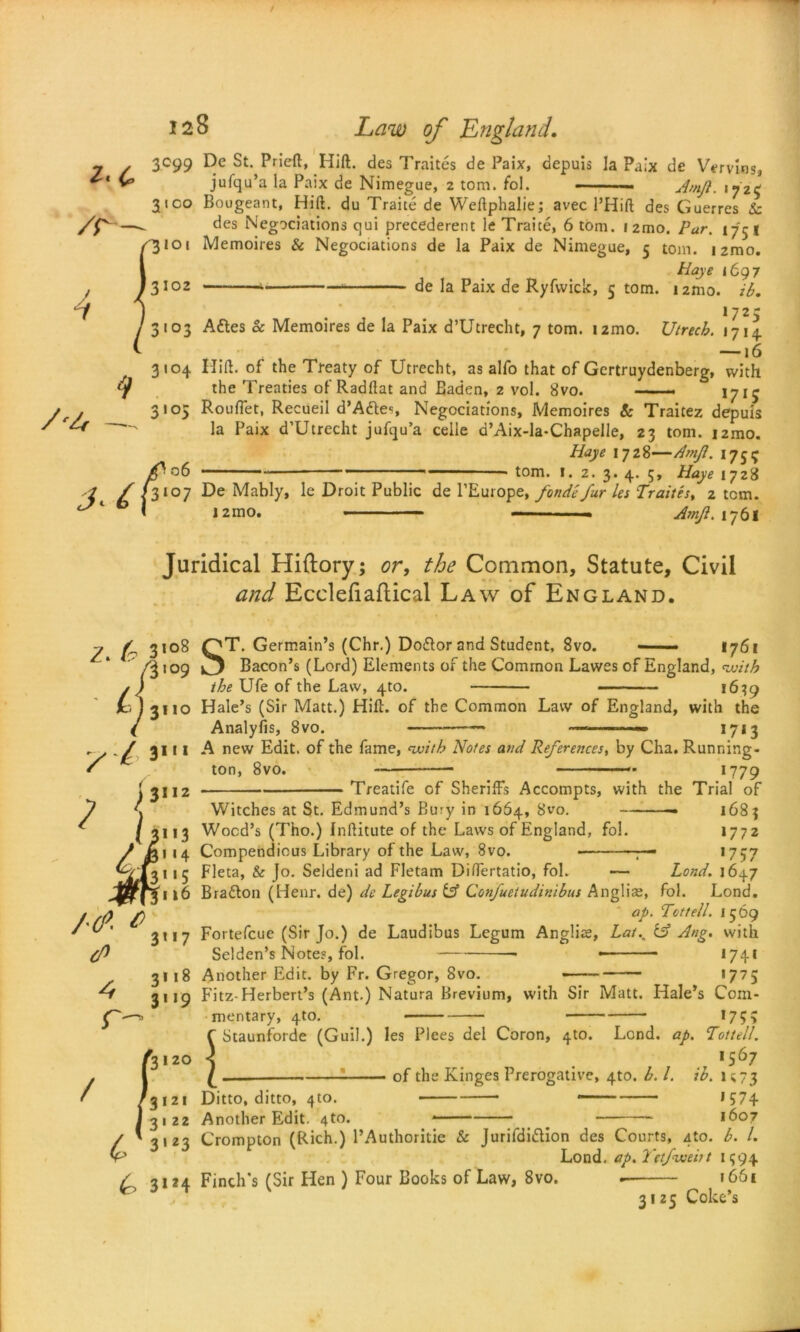 128 Law of England.
2. 6 3099 De St. Prieſt, Hiſt. des Traités de Paix, depuis la Paix de Vervins,
juſqu’a la Paix de Nimegue, 2 tom. fol. —— Amſt. 1725
3100 Bougeant, Hiſt. du Traité de Weſtphalie; avec l’Hiſt des Guerres &
des Negociations qui precederent le Traité, 6 tom. 12mo. Par. 1751
3101 Memoires & Negociations de la Paix de Nimegue, 5 tom. 12mo.
Haye 1697
3102 —— —— de la Paix de Ryſwick, 5 tom. 12mo. ib.
1725
4 3103 Actes & Memoires de la Paix d’Utrecht, 7 tom. 12mo. Utrech. 1714
—16
3104 Hiſt. of the Treaty of Utrecht, as alſo that of Gertruydenberg, with
the Treaties of Radſtat and Baden, 2 vol. 8vo. —— 1715
3105 Rouſſet, Recueil d’Actes, Negociations, Memoires & Traitez depuis
la Paix d’Utrecht juſqu’a celle d’Aix-la-Chapelle, 23 tom. 12mo.
Haye 1728—Amſt. 1755
06 —— —— tom. 1. 2. 3. 4. 5, Haye 1728
3. 6 3107 De Mably, le Droit Public de l’Europe, fondé ſur les Traités, 2 tom.
12mo. —— —— Amſt. 1761
Juridical Hiſtory; or, the Common, Statute, Civil
and Eccleſiaſtical Law of England.
2. 6 3108 ST. Germain’s (Chr.) Doctor and Student, 8vo. —— 1761
3109 Bacon’s (Lord) Elements of the Common Lawes of England, with
the Uſe of the Law, 4to. —— —— 1639
3110 Hale’s (Sir Matt.) Hiſt. of the Common Law of England, with the
Analyſis, 8vo. —— —— 1713
3111 A new Edit. of the ſame, with Notes and References, by Cha. Running-
ton, 8vo. —— —— 1779
3112 —— —— Treatiſe of Sheriffs Accompts, with the Trial of
Witches at St. Edmund’s Bury in 1664, 8vo. —— 1683
3113 Wood’s (Tho.) Inſtitute of the Laws of England, fol. 1772
3114 Compendious Library of the Law, 8vo. —— 1757
3115 Fleta, & Jo. Seldeni ad Fletam Diſſertatio, fol. — Lond. 1647
3116 Bracton (Henr. de) de Legibus & Conſuetudinibus Angliæ, fol. Lond.
ap. Tottell. 1569
3117 Forteſcue (Sir Jo.) de Laudibus Legum Angliæ, Lat. & Ang. with
Selden’s Notes, fol. —— —— 1741
3118 Another Edit. by Fr. Gregor, 8vo. —— 1775
4 3119 Fitz-Herbert’s (Ant.) Natura Brevium, with Sir Matt. Hale’s Com-
mentary, 4to. —— —— 1755
Staunforde (Guil.) les Plees del Coron, 4to. Lond. ap. Tottell.
3120 1567
—— of the Kinges Prerogative, 4to. b. l. ib. 1573
3121 Ditto, ditto, 4to. —— —— 1574
3122 Another Edit. 4to. —— —— 1607
3123 Crompton (Rich.) l’Authoritie & Juriſdiction des Courts, 4to. b. l.
Lond. ap. Yetſweirt 1594
6 3124 Finch’s (Sir Hen ) Four Books of Law, 8vo. —— 1661
3125 Coke’s